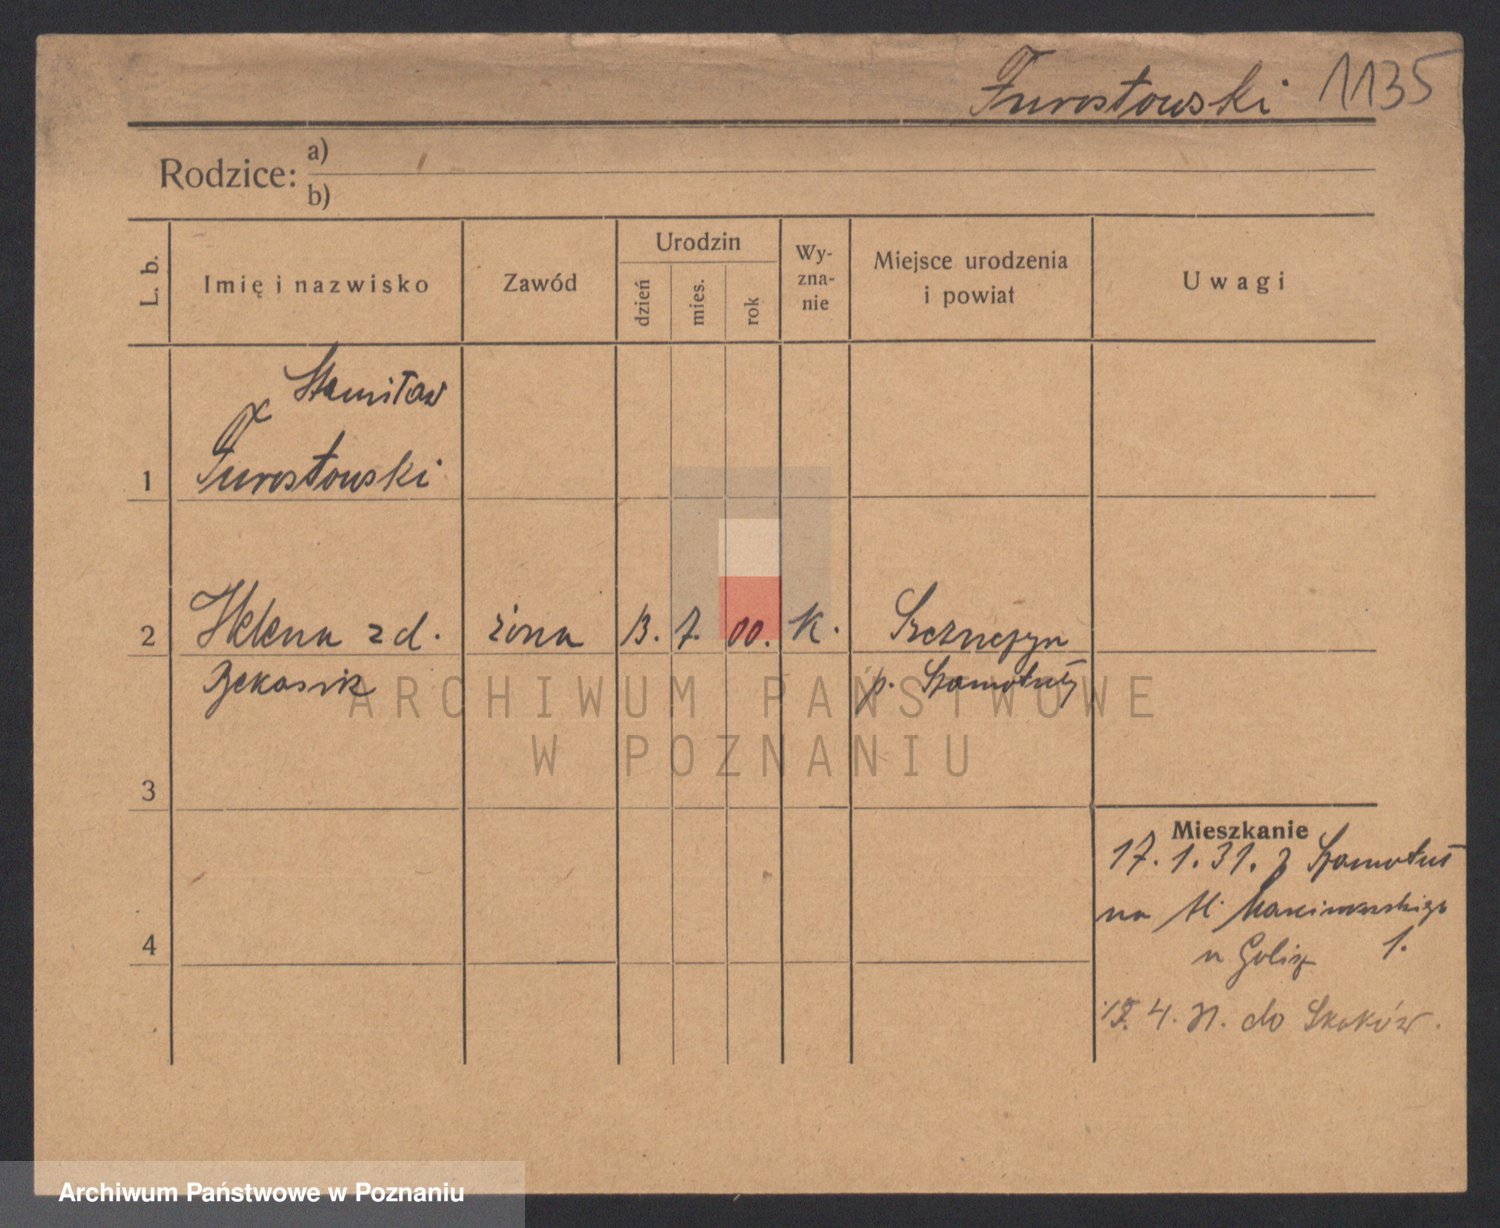 Turostowski 1135
Rodzice: a)
b)
L. b.
Imię i nazwisko
Zawód
Urodzin
dzień
mies.
rok
Wy-
zna-
nie
Miejsce urodzenia
i powiat
Uwagi
Stanisław
1 Turostowski
2 Helena z d. żona 13. 7. 00. k.
p. Szamotuły
3
4
Mieszkanie
17. 1. 31. z Szamotuł
na Pl. Marcinkowskiego
1.
4. 31. do Skoków.
ARCHIWUM PAŃSTWOWE
W POZNANIU
Archiwum Państwowe w Poznaniu